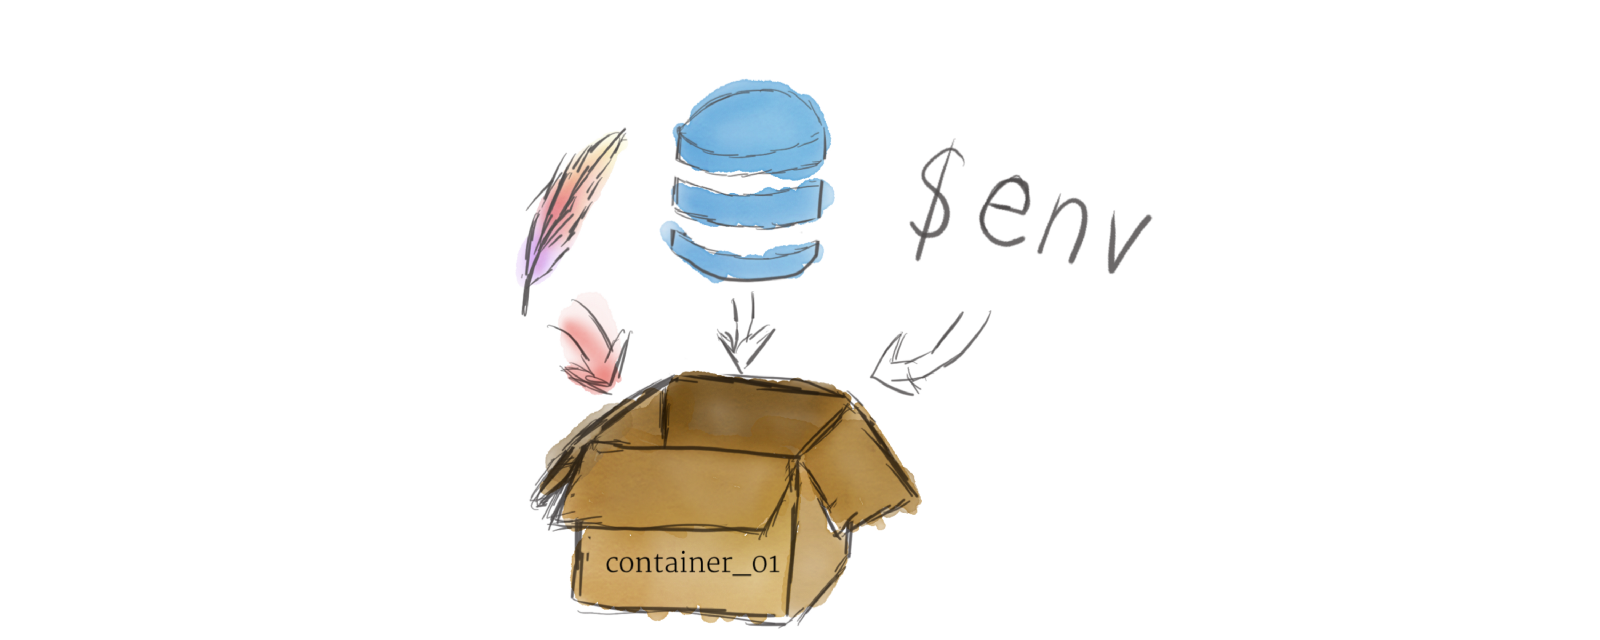 $env
container_01